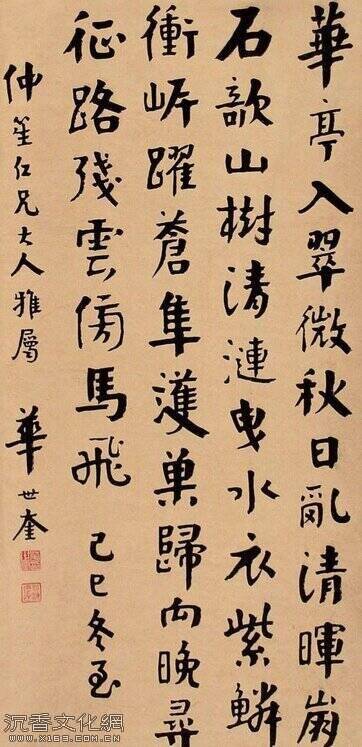 華亭入翠微秋日亂清暉崩
石欹山樹清漣曳水衣紫鱗
衝岸躍蒼隼護巢歸向晚尋
征路殘雲傍馬飛 己巳冬至
仲笙仁兄大人雅屬
華世奎
沉香文化網